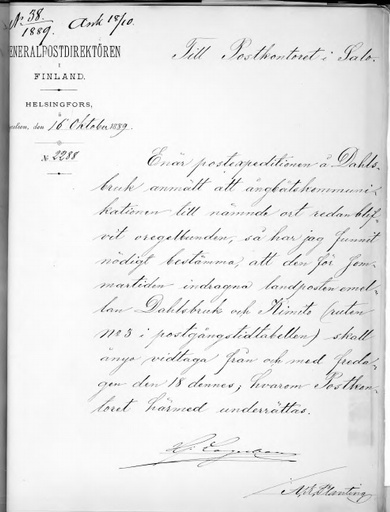 No 38.
1889. Ank 18/10.
GENERALPOSTDIREKTÖREN
I
FINLAND.
HELSINGFORS,
den 16 Oktober 1889.
No 2288
Till Postkontoret i Salo.
Enär postexpeditionen å Dahls-
bruk anmält att ångbåtskommuni-
kationen till nämnde ort redan blif-
vit oregelbunden, så har jag funnit
nödigt bestämma, att den för som-
martiden indragna landposten emel-
lan Dahlsbruk och Kimito (ruten
No 3 i postgångstidtabellen) skall
ånyo vidtaga från och med freda-
gen den 18 dennes; hvarom Postkon-
toret härmed underrättas.